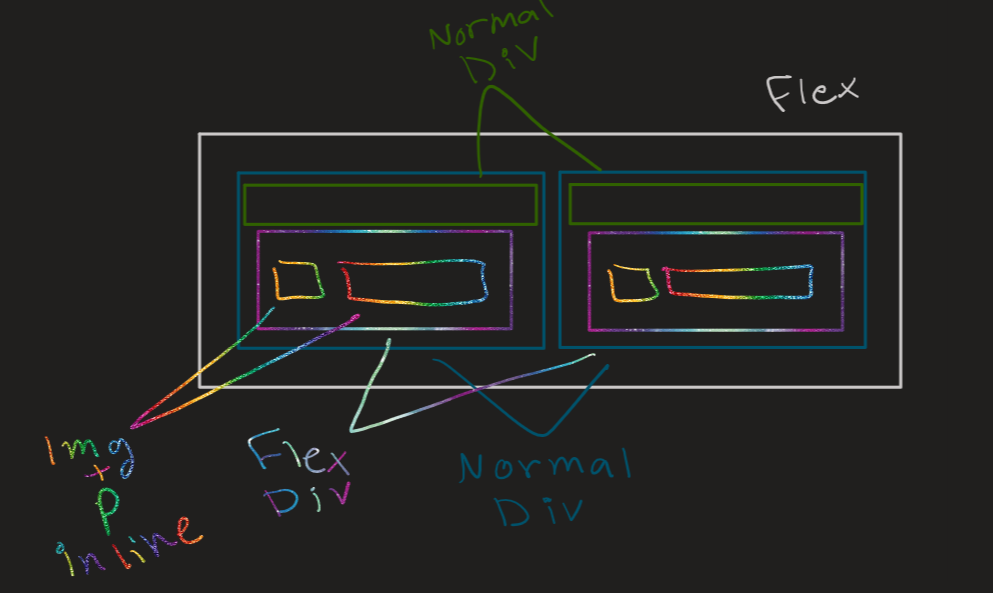 Normal
Div
Flex
Img
+
P
inline
Flex
Div
Normal
Div